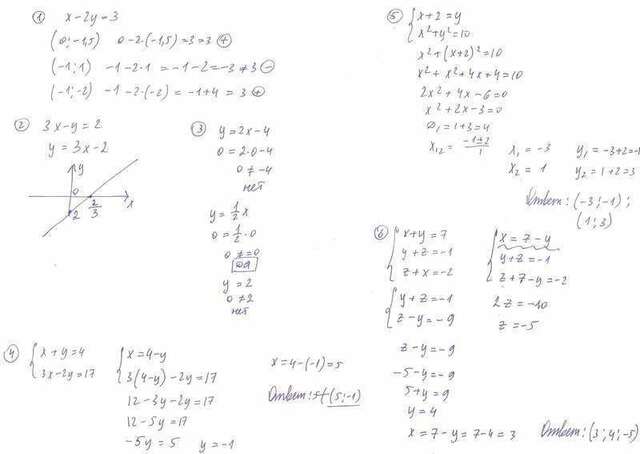 ① x-2y=3
(0;-1,5) 0-2·(-1,5)=3=3 ⊕
(-1;1) -1-2·1=-1-2=-3≠3 ⊖
(-1;-2) -1-2·(-2)=-1+4=3 ⊕
② 3x-y=2
y=3x-2
y
0
2/3
x
-2
③ y=2x-4
0=2·0-4
0≠-4
нет
y=1/2x
0=1/2·0
0=0
да
y=2
0≠2
нет
4 {x+y=4
3x-2y=17
{x=4-y
3(4-y)-2y=17
12-3y-2y=17
12-5y=17
-5y=5 y=-1
x=4-(-1)=5
Ответ: (5;-1)
⑤ {x+2=y
x²+y²=10
x²+(x+2)²=10
x²+x²+4x+4=10
2x²+4x-6=0
x²+2x-3=0
D₁=1+3=4
x₁,₂=(-1±2)/1
x₁=-3 y₁=-3+2=-1
x₂=1 y₂=1+2=3
Ответ: (-3;-1);
(1;3)
⑥ {x+y=7
y+z=-1
z+x=-2
{x=7-y
y+z=-1
z+7-y=-2
{y+z=-1
z-y=-9
2z=-10
z=-5
z-y=-9
-5-y=-9
5+y=9
y=4
x=7-y=7-4=3
Ответ: (3;4;-5)